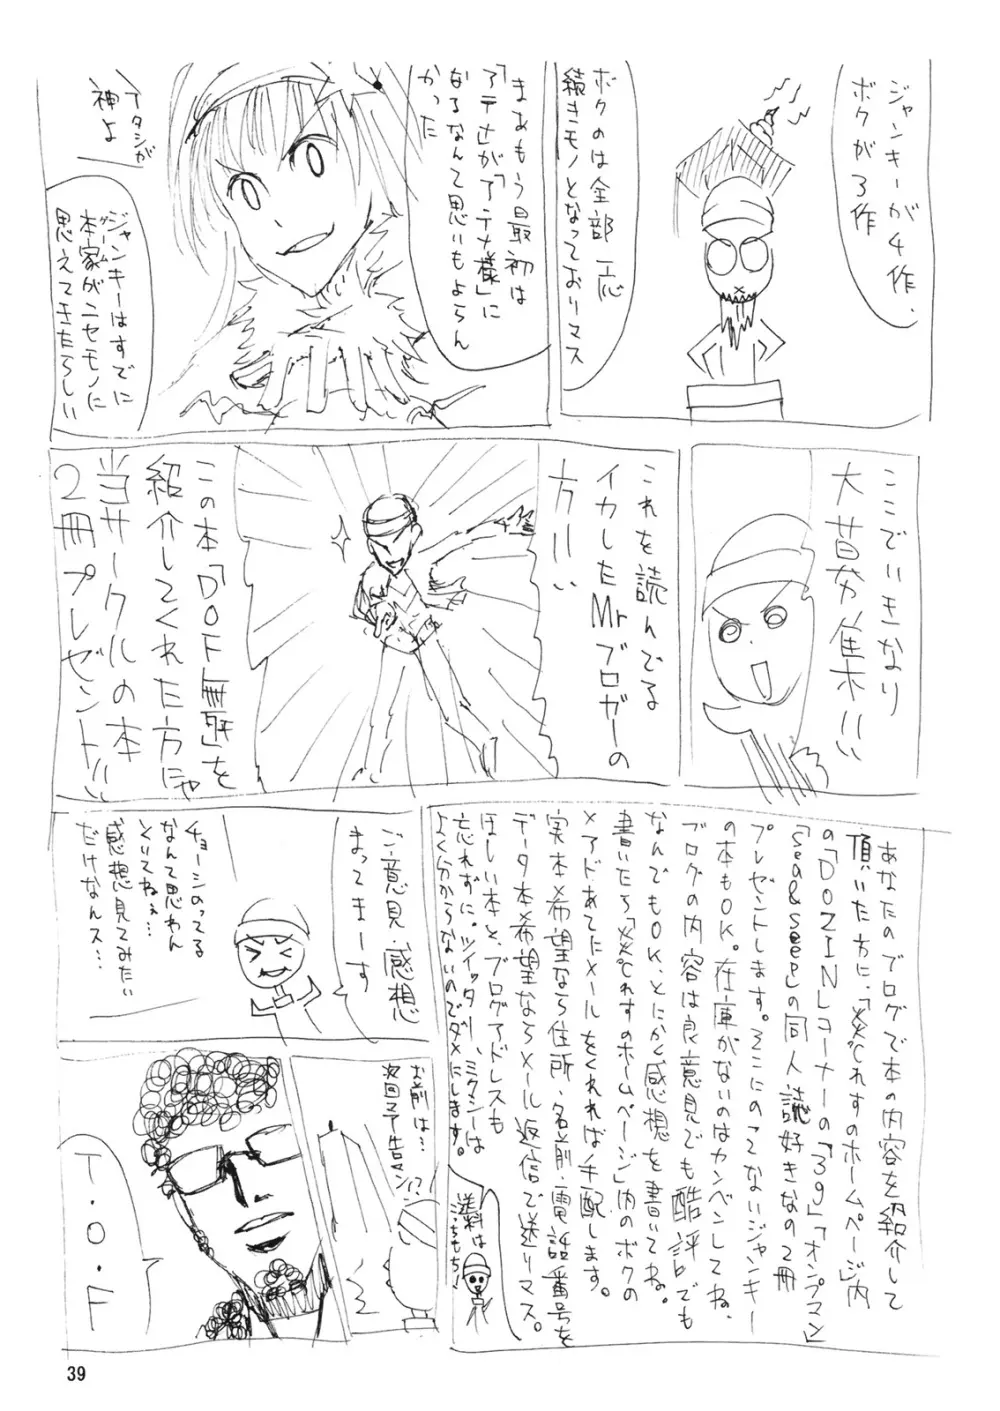 ジャンキーが4作.
ボクが3作
ボクのは全部一応
続きモノとなっておりマス
まあもう最初は
「アテナ」が「アテナ様」に
なるなんて思いもよらん
かった
アタシが
神よ
ジャンキーはすでに
本家がニセモノに
ゲーム
思えてきたらしい
ここでいきなり
大募集!!
これを読んでる
イカしたMrブロガーの
方!!
この本「DOF無頼」を
紹介してくれた方にゃ
当サークルの本
2冊プレゼント!!
あなたのブログで本の内容を紹介して
頂いた方に、「災これすのホームページ」内
の「DOZIN」コーナーの「39」「オンプマン」
「sea&seep」の同人誌好きなの2冊
プレゼントします。そこにのってないジャンキー
の本もOK。在庫がないのはカンベンしてね。
ブログの内容は良意見でも酷評でも
なんでもOK、とにかく感想を書いてね。
書いたら「災これすのホームページ」内のボクの
メアドあてにメールをくれれば手配します。
実本希望なら住所・名前・電話番号を
データ本希望ならメール返信で送りマス。
ほしい本と、ブログアドレスも
忘れずに。ツイッター、ミクシーは
よく分からないのでダメにします。
送料は
こっちもち!
ご意見・感想
まってまーす
チョーシのってる
なんて思わん
といてねぇ…
感想見てみたい
だけなんス…
お前は…
次回予告マン!?
T・O・F
39